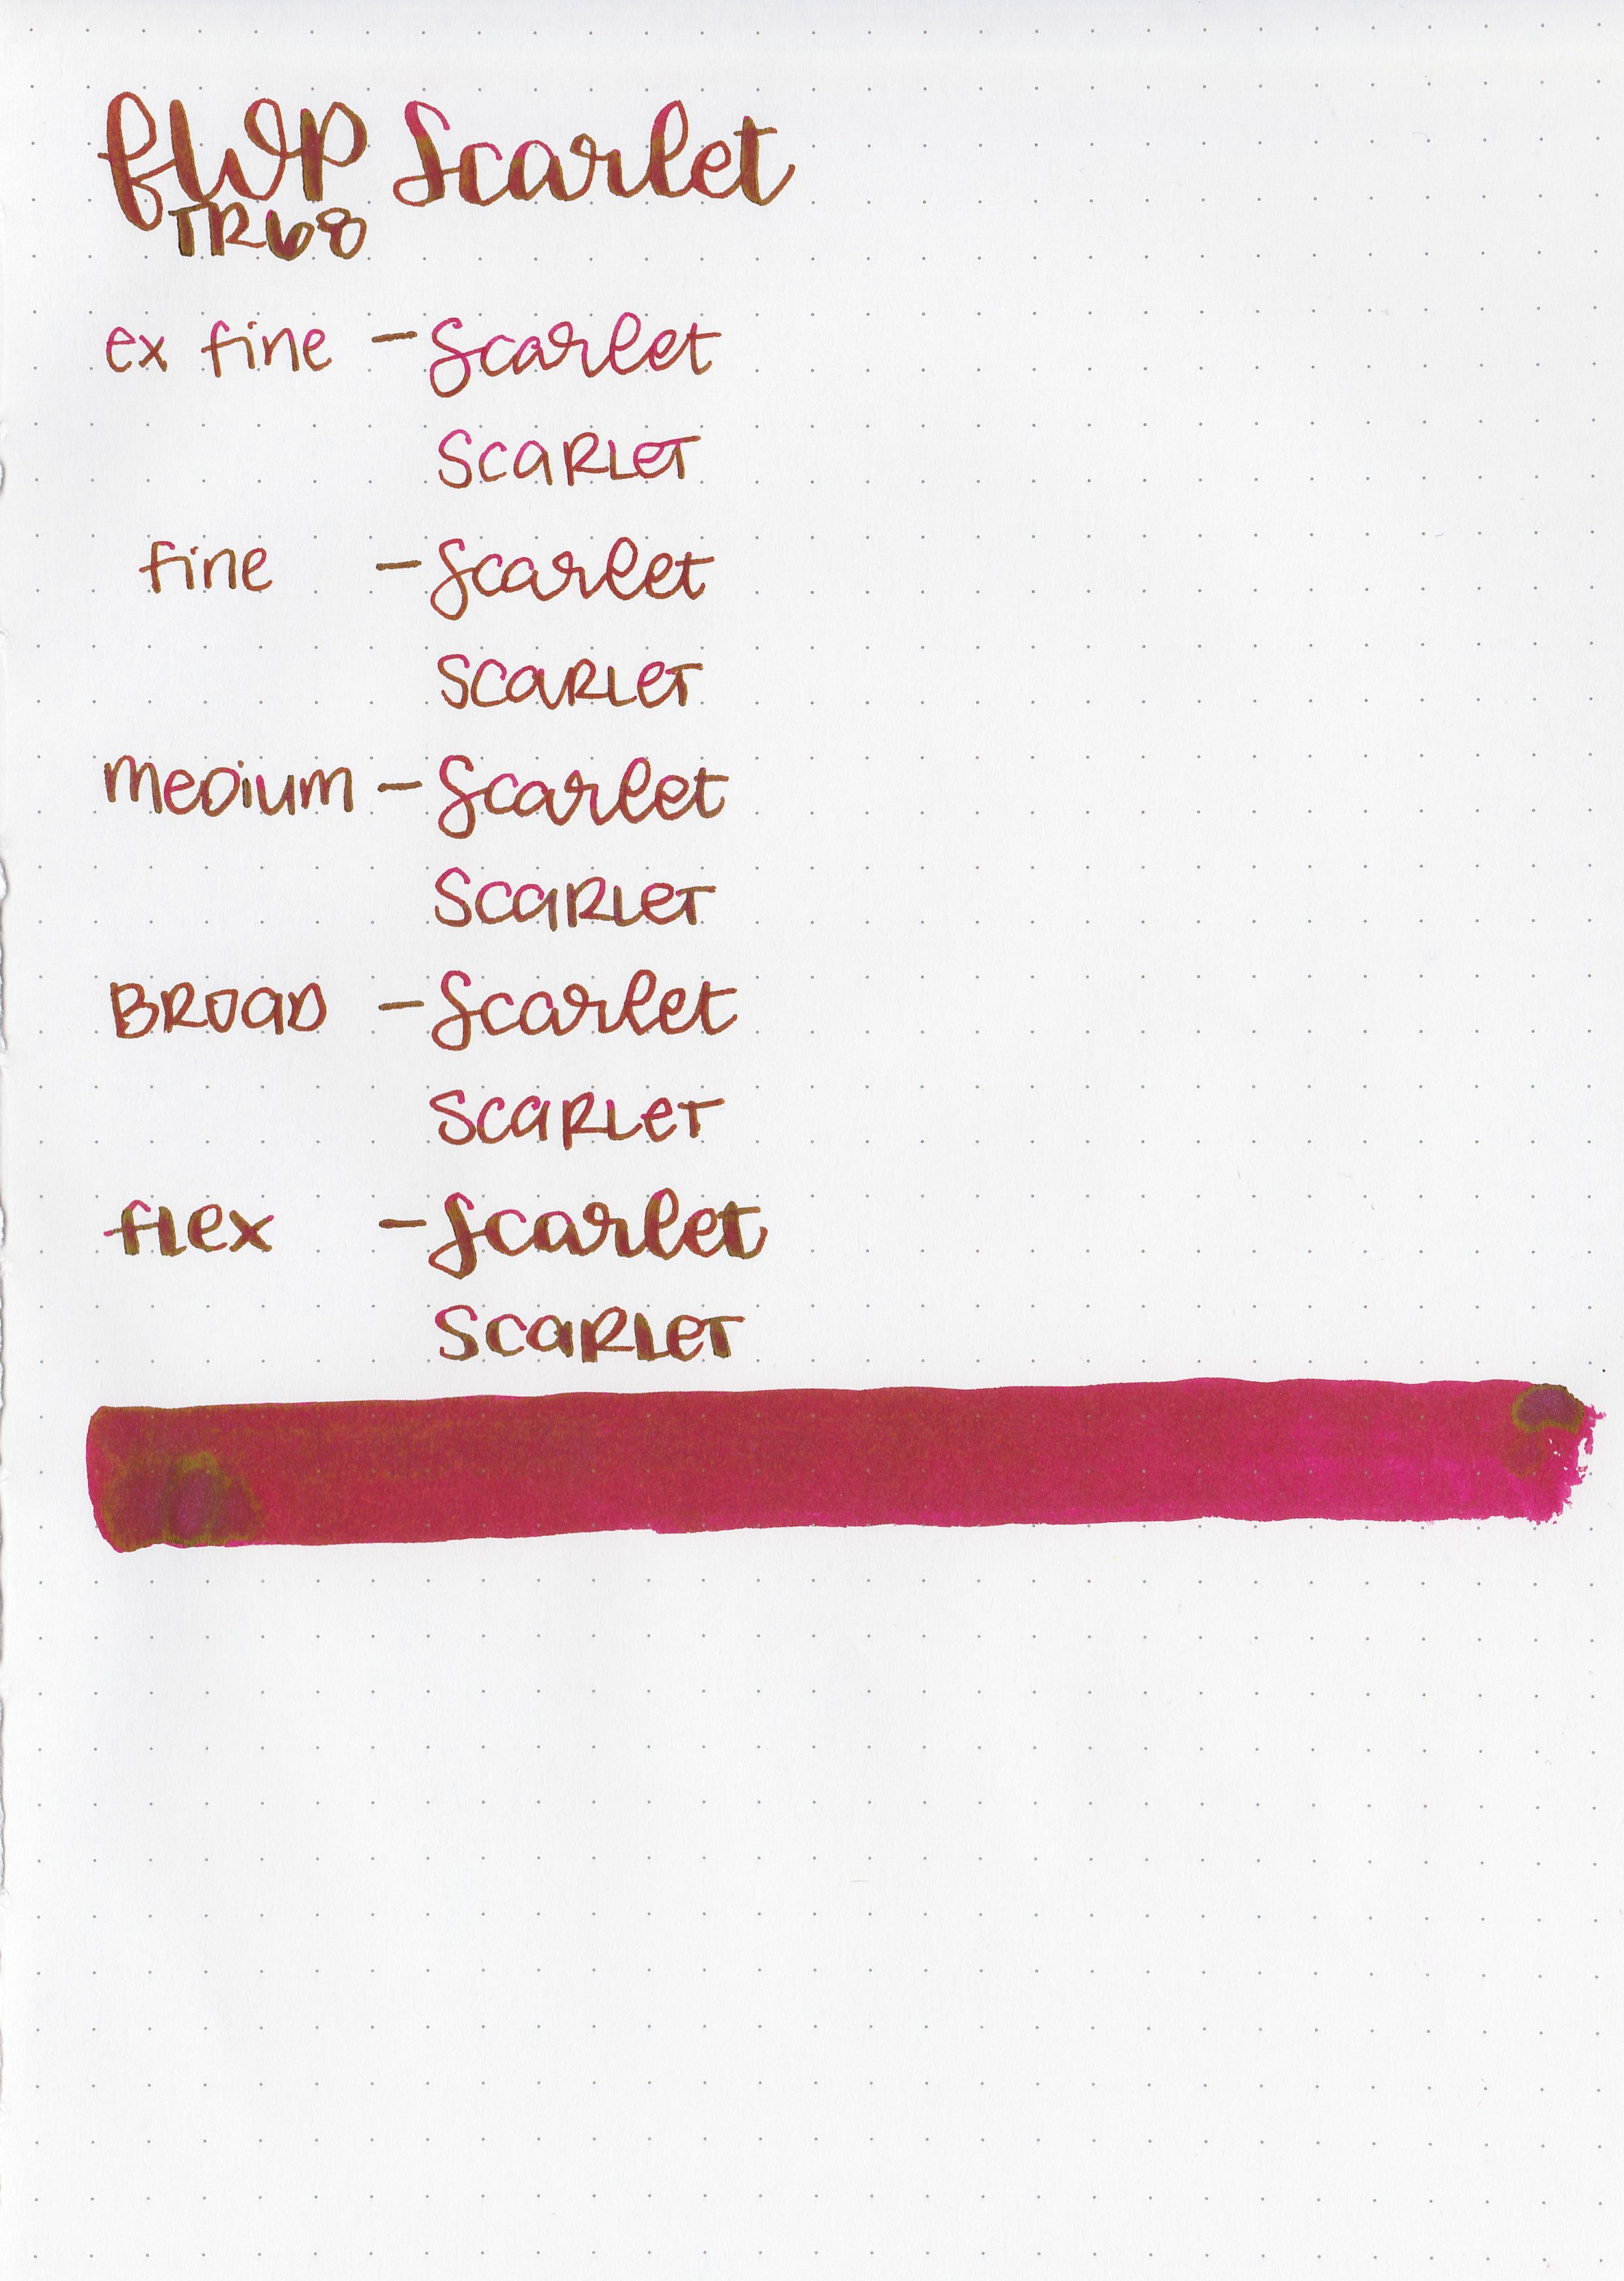 FWP Scarlet
TR68
ex fine - Scarlet
SCARLET
fine - Scarlet
SCARLET
MEDIUM - Scarlet
SCARLET
BROAD - Scarlet
SCARLET
flex - Scarlet
SCARLET